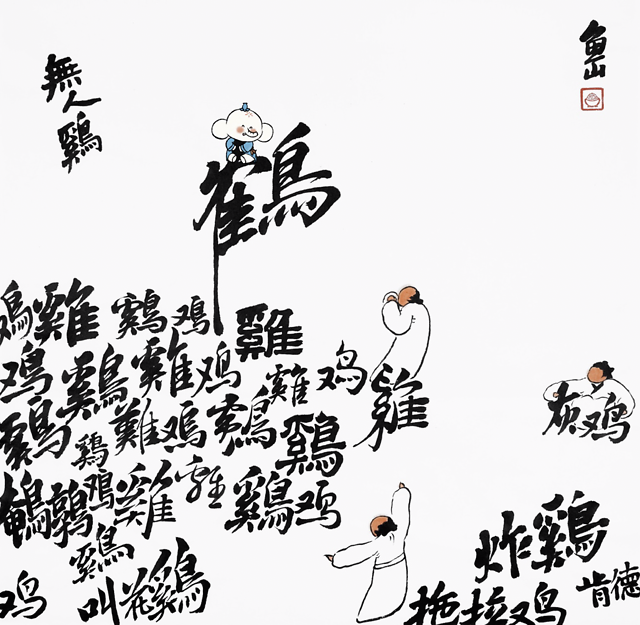 無人鷄
鱼山
鶴
鸡雞鷄鸡雞
鸡鷄雞鸡雞鸡雞
灰鸡
鷄鷄難鸡鷄鷄
鵪鶉鸡雞離鷄鸡
鷄
炸鷄
鸡
叫花鷄
拖拉鸡
肯德